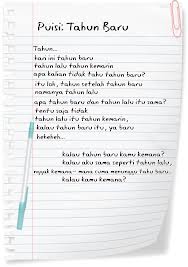 Puisi: Tahun Baru
Tahun...
hari ini tahun baru
tahun lalu tahun kemarin
apa kalian tidak tahu tahun baru?
itu lah, tahun setelah tahun baru
namanya tahun lalu
apa tahun baru dan tahun lalu itu sama?
tentu saja tidak
tahun lalu itu kemarin,
kalau tahun baru itu, ya baru
heheheh...
kalau tahun baru kamu kemana?
kalau aku sama seperti tahun lalu,
nggak kemana- mana cuma nunggu tahu baru..
kalau kamu kemana?